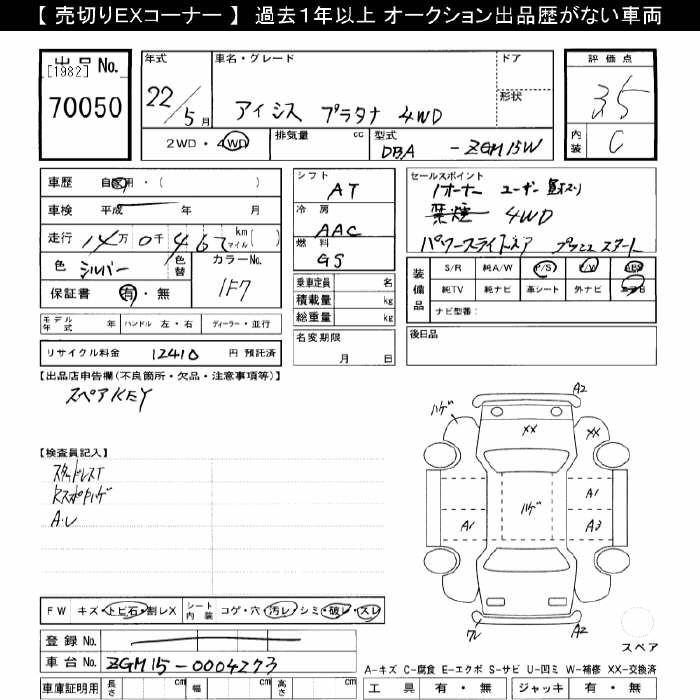 【 売切りEXコーナー 】 過去1年以上 オークション出品歴がない車両
出品 No.
[1982]
70050
年式
22/5月
車名・グレード
アイシス プラタナ 4WD
ドア
形状
2WD・4WD
排気量 cc
型式
DBA - ZGM15W
評価点
3.5
内装
C
車歴 自家用・( )
車検 平成 年 月
走行 14万 0千 462 km マイル( )
色 シルバー 色替 カラーNo. 1F7
保証書 有・無
シフト
AT
冷房
AAC
燃料
GS
乗車定員 名
積載量 kg
総重量 kg
名変期限
月 日
セールスポイント
1オーナー ユーザー買取り
禁煙 4WD
パワースライドドア プッシュスタート
装備品
S/R 純A/W P/S P/W ABS
純TV 純ナビ 革シート 外ナビ エアB
ナビ型番:
後日品
モデル年式 年 ハンドル 左・右 ディーラー・並行
リサイクル料金 12410 円 預託済
【出品店申告欄(不良箇所・欠品・注意事項等)】
スペアKEY
【検査員記入】
スタッドレスT
RスポMハゲ
A.U
A2
ハゲ
XX
XX
ハゲ
A1
A1
A3
ワレ
A2
スペア
FW キズ・トビ石・割レX シート内装 コゲ・穴・汚レ・シミ・破レ・スレ
登録 No.
車台 No. ZGM15-0004273
車庫証明用 長さ cm 幅 cm 高さ cm
A-キズ C-腐食 E-エクボ S-サビ U-凹ミ W-補修 XX-交換済
工具 有・無 ジャッキ 有・無